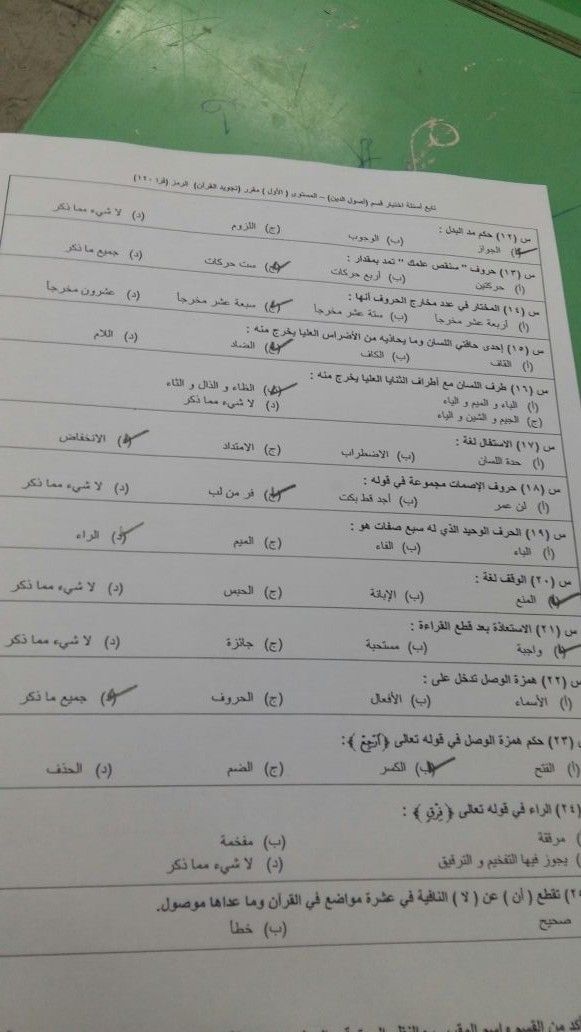 تابع أسئلة اختبار قسم (أصول الدين) – المستوى (الأول) مقرر (تجويد القرآن) الرمز (قرا ١٢٠)
س (١٢) حكم مد البدل :
(أ) الجواز (ب) الوجوب (ج) اللزوم (د) لا شيء مما ذكر
س (١٣) حروف " سنقص علمك " تمد بمقدار :
(أ) حركتين (ب) أربع حركات (ج) ست حركات (د) جميع ما ذكر
س (١٤) المختار في عدد مخارج الحروف أنها :
(أ) أربعة عشر مخرجاً (ب) ستة عشر مخرجاً (ج) سبعة عشر مخرجاً (د) عشرون مخرجاً
س (١٥) إحدى حافتي اللسان وما يحاذيه من الأضراس العليا يخرج منه :
(أ) القاف (ب) الكاف (ج) الضاد (د) اللام
س (١٦) طرف اللسان مع أطراف الثنايا العليا يخرج منه :
(أ) الباء و الميم و الياء الظاء و الذال و الثاء
(ج) الجيم و الشين و الياء (د) لا شيء مما ذكر
س (١٧) الاستفال لغة :
(أ) حدة اللسان (ب) الاضطراب (ج) الامتداد (د) الانخفاض
س (١٨) حروف الإصمات مجموعة في قوله :
(أ) لن عمر (ب) أجد قط بكت (ج) فر من لب (د) لا شيء مما ذكر
س (١٩) الحرف الوحيد الذي له سبع صفات هو :
(أ) الباء (ب) الفاء (ج) الميم (د) الراء
س (٢٠) الوقف لغة :
(أ) المنع (ب) الإبانة (ج) الحبس (د) لا شيء مما ذكر
س (٢١) الاستعاذة بعد قطع القراءة :
(أ) واجبة (ب) مستحبة (ج) جائزة (د) لا شيء مما ذكر
س (٢٢) همزة الوصل تدخل على :
(أ) الأسماء (ب) الأفعال (ج) الحروف (د) جميع ما ذكر
(٢٣) حكم همزة الوصل في قوله تعالى ﴿ ﴾:
(أ) الفتح (ب) الكسر (ج) الضم (د) الحذف
(٢٤) الراء في قوله تعالى ﴿ فِرْقٍ ﴾ :
) مرققة (ب) مفخمة
) يجوز فيها التفخيم و الترقيق (د) لا شيء مما ذكر
) تقطع ( أن ) عن ( لا ) النافية في عشرة مواضع في القرآن وما عداها موصول.
صحيح (ب) خطأ